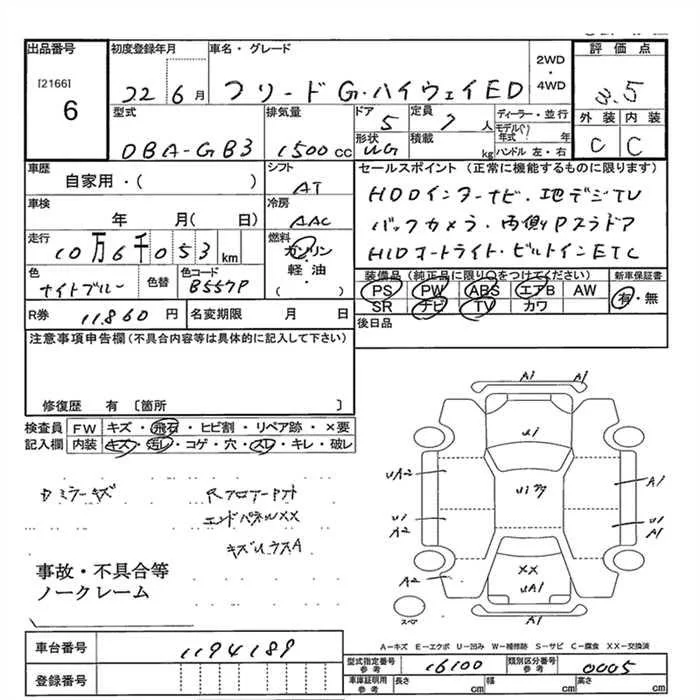 出品番号 初度登録年月 車名・グレード 2WD・4WD 評価点
[2166] 6
22 6月 フリード G・ハイウェイED 3.5
型式 排気量 ドア 定員 ディーラー・並行 外装 内装
DBA-GB3 1500cc 5 7人 モデル(年式) 年
形状 積載 kg ハンドル 左・右 C C
WG
車歴 シフト セールスポイント (正常に機能するものに限ります)
自家用・( ) AT HDDインターナビ・地デジTV
車検 冷房
年 月( 日) AAC バックカメラ・両側Pスラドア
走行 燃料
10万6千053km ガソリン・軽油・( ) HIDオートライト・ビルトインETC
色 色替 色コード 装備品 (純正品に限り○をつけてください) 新車保証書
ナイトブルー B557P PS PW ABS エアB AW 有・無
SR ナビ TV カワ
R券 11860円 名変期限 月 日 後日品
注意事項申告欄 (不具合内容等は具体的に記入して下さい)
修復歴 有 〔箇所 〕
検査員 FW キズ・飛石・ヒビ割・リペア跡・×要
記入欄 内装 キズ・汚レ・コゲ・穴・スレ・キレ・破レ
ミラーキズ
エンドパネルXX
事故・不具合等
ノークレーム
A1 A1
UA2 A1
U1
A2 XX
UA1
A1
スペア
A-キズ E-エクボ U-凹み W-補修跡 S-サビ C-腐食 XX-交換済
車台番号 1194189 型式指定番号 参考 16100 類別区分番号 参考 0005
登録番号 車庫証明用 参考 長さ cm 幅 cm 高さ cm